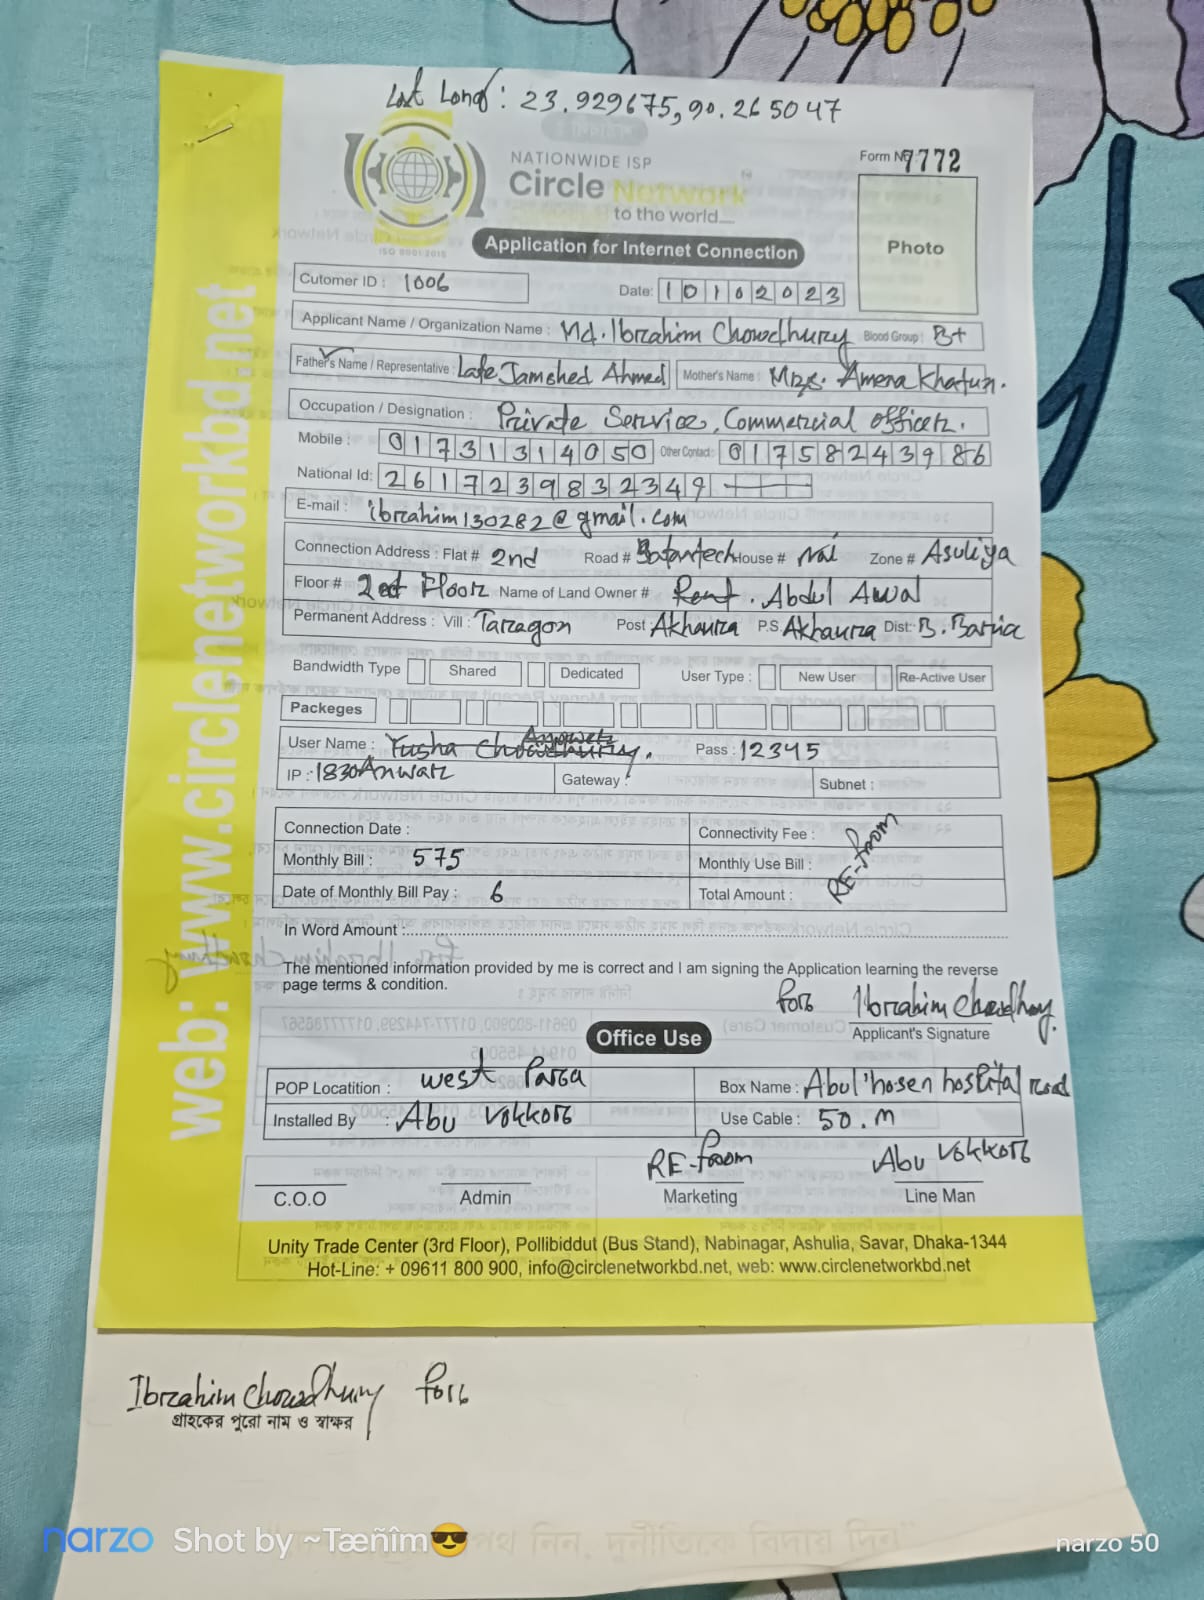 Lat Long : 23.929675,90.265047
NATIONWIDE ISP
Form Nº 7772
Circle Network
to the world....
ISO 9001:2015
Application for Internet Connection
Photo
Cutomer ID : 1006
Date: 10102023
Applicant Name / Organization Name : Md. Ibrahim Chowdhury Blood Group : B+
Father's Name / Representative : Late Jamshed Ahmed Mother's Name : Mrs. Amena Khatun.
Occupation / Designation : Private Service, Commercial officer.
Mobile : 01731314050 Other Contact : 01758243986
National Id: 2617239832349
E-mail : ibrahim130282@gmail.com
Connection Address : Flat # 2nd Road # House # Zone # Asuliya
Floor # Floor Name of Land Owner # Rent. Abdul Awal
Permanent Address : Vill : Taragon Post : Akhaura P.S. Akhaura Dist: B. Baria
Bandwidth Type Shared Dedicated User Type : New User Re-Active User
Packeges
User Name : Yusha Pass : 12345
IP : 1830Anwar Gateway : Subnet :
Connection Date : Connectivity Fee :
Monthly Bill : 575 Monthly Use Bill :
Date of Monthly Bill Pay : 6 Total Amount :
RE-from
In Word Amount :
The mentioned information provided by me is correct and I am signing the Application learning the reverse
page terms & condition.
for Ibrahim Chowdhury
Applicant's Signature
Office Use
POP Locatition : west Para Box Name : Abul hosen hospital road
Installed By : Abu Vokkor Use Cable : 50.M
RE-from Abu Vokkor
C.O.O Admin Marketing Line Man
Unity Trade Center (3rd Floor), Pollibiddut (Bus Stand), Nabinagar, Ashulia, Savar, Dhaka-1344
Hot-Line: + 09611 800 900, info@circlenetworkbd.net, web: www.circlenetworkbd.net
web: www.circlenetworkbd.net
Ibrahim Chowdhury for
গ্রাহকের পুরো নাম ও স্বাক্ষর
narzo Shot by ~Tæñîm😎
narzo 50